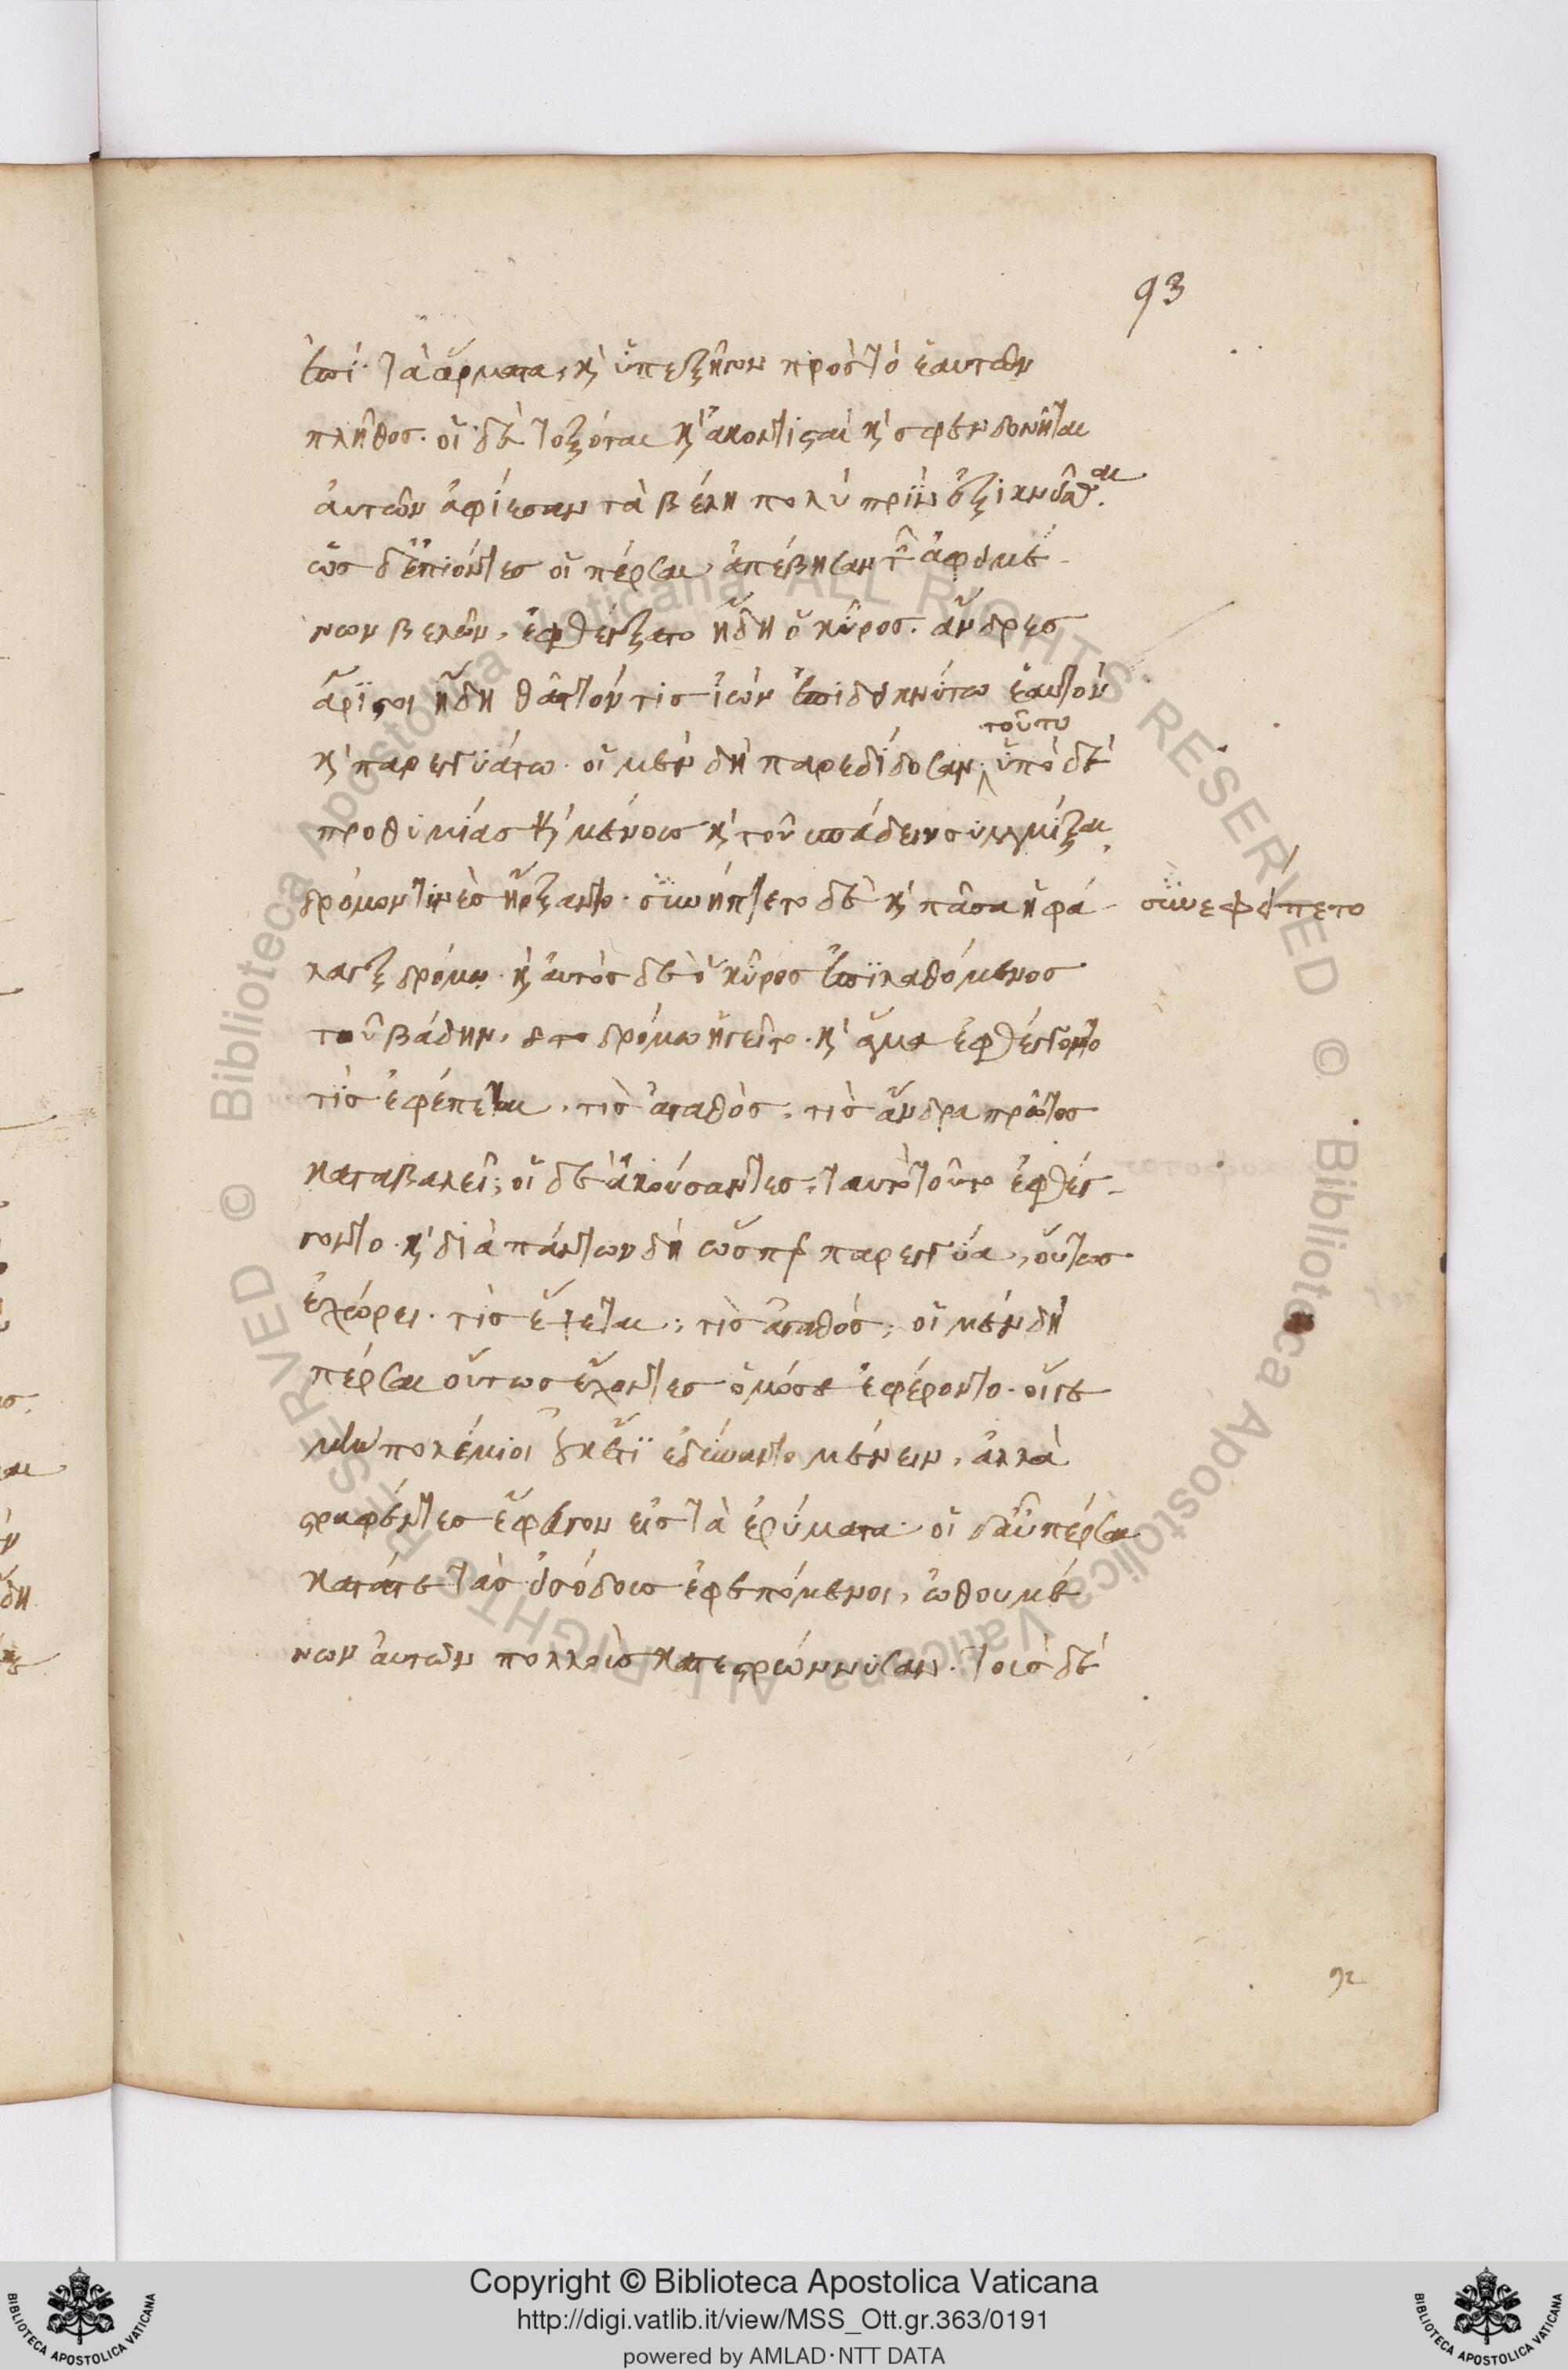 93
ἐπὶ τὰ ἅρματα, κ̀ ὑπεξῆγον πρὸς τὸ ἑαυτῶν
πλῆθος. οἱ δὲ τοξόται κ̀ ἀκοντισταὶ κ̀ σφενδονῆται
ἀυτῶν ἀφίεσαν τὰ βέλη πολὺ πρὶν ἐξικνεῖσθαι.
ὡς δ' ἐπιόντες οἱ πέρσαι ἐπέβησαν τῶν ἀφειμέ-
νων βελῶν, ἐφθέγξατο ἤδη ὁ κῦρος. ἄνδρες
ἄριστοι ἤδη θᾶττόν τις ἰὼν ἐπιδεικνύτω ἑαυτὸν
κ̀ παρεγγυάτω. οἱ μὲν δὴ παρεδίδοσαν. τοῦτο ὑπὸ δὲ
προθυμίας κ̀ μένους κ̀ τοῦ σπεύδειν συμμίξαι,
δρόμου τινὲς ἤρξαντο. συνήπτετο δὲ κ̀ πᾶσα ἡ φά-
συνεφείπετο
λαγξ δρόμῳ. κ̀ ἀυτὸς δὲ ὁ κῦρος ἐπιλαθόμενος
τοῦ βάδην, δρόμω ἡγεῖτο. κ̀ ἅμα ἐφθέγγοντο
τίς ἐφέπεται, τίς ἀγαθός, τίς ἄνδρα πρῶτος
καταβαλεῖ; οἱ δὲ ἀκούσαντες, ταυτὸ τοῦτο ἐφθέγ-
γοντο. κ̀ διὰ πάντων δὴ ὥσπερ παρεγγύα, οὕτως
ἐχώρει. τίς ἕψεται; τίς ἀγαθός; οἱ μὲν δὴ
πέρσαι οὕτως ἔχοντες ὁμόσε ἐφέροντο. οἵγε
μὴν πολέμιοι οὐκέτι ἐδύναντο μένειν, ἀλλὰ
στραφέντες ἔφευγον εἰς τὰ ἐρύματα. οἱ δ' αὖ πέρσαι
κατάτε τὰς εἰσόδους ἐφεπόμενοι, ὠθουμέ
νων ἀυτῶν πολλοὺς κατεστρώννυσαν. τοὺς δὲ
92
Copyright © Biblioteca Apostolica Vaticana
http://digi.vatlib.it/view/MSS_Ott.gr.363/0191
powered by AMLAD·NTT DATA